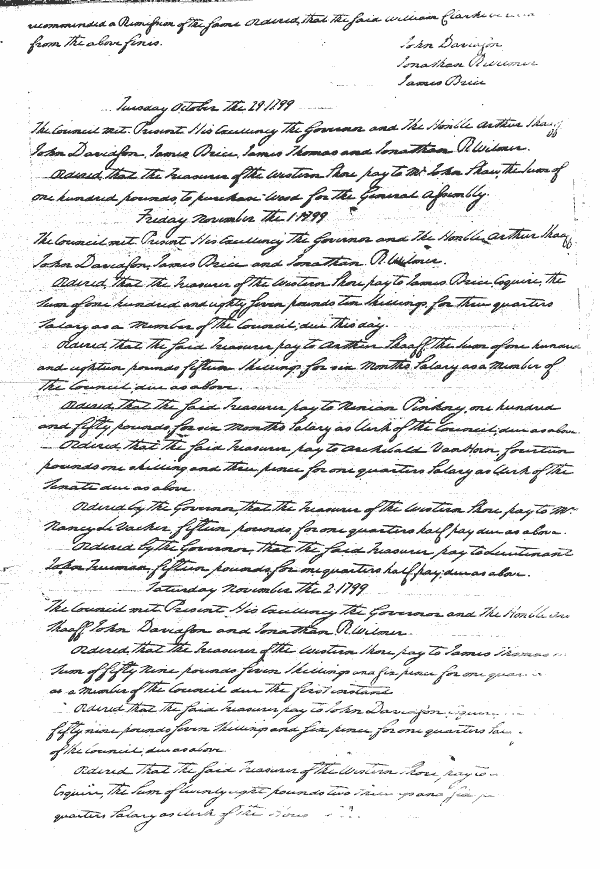 recommended a Remission of the same Ordered, that the said William Clarke
from the above fines.
John Davidson
Jonathan R. Wilmer
James Brice
Tuesday October the 29 1799
The Council met. Present His Excellency the Governor and The Honble Arthur Shaaff
John Davidson, James Brice, James Thomas and Jonathan R. Wilmer.
Ordered, that the Treasurer of the Western Shore, pay to Mr. John Shaw, the Sum of
one hundred pounds, to purchase Wood for the General Assembly.
Friday November the 1 1799
The Council met. Present His Excellency the Governor and The Honble Arthur Shaaff
John Davidson, James Brice and Jonathan R. Wilmer.
Ordered, that the Treasurer of the Western Shore, pay to James Brice, Esquire, the
Sum of one hundred and eighty Seven pounds ten Shillings, for three quarters
Salary as a Member of the Council, due this day.
Ordered, that the said Treasurer pay to Arthur Shaaff, the Sum of one hundred
and eighteen pounds fifteen Shillings for six months Salary as a Member of
the Council due as above.
Ordered, that the said Treasurer pay to Ninian Pinkney, one hundred
and fifty pounds, for six months Salary as Clerk of the Council, due as above
Ordered, that the said Treasurer, pay to Archibald VanHorn, fourteen
pounds one shilling and three pence for one quarters Salary as Clerk of the
Senate due as above
Ordered by the Governor, that the Treasurer of the Western Shore, pay to Mrs.
Nancy de Vacher, fifteen pounds, for one quarters half pay due as above.
Ordered by the Governor, that the said Treasurer, pay to Lieutenant
John Truman, fifteen pounds, for one quarters half pay, due as above.
Saturday November the 2 1799
The Council met. Present His Excellency the Governor and the Honble
Shaaff, John Davidson and Jonathan R. Wilmer.
Ordered, that the Treasurer of the Western Shore, pay to James Thomas
Sum of fifty nine pounds Seven Shillings and six pence for one
as a Member of the Council due the first instant
Ordered that the said Treasurer pay to John Davidson
fifty nine pounds Seven Shillings and six pence for one quarters
of the Council, due as above
Ordered that the said Treasurer of the Western Shore, pay to
Esquire, the Sum of twenty eight pounds two and six
quarters Salary as Clerk of the